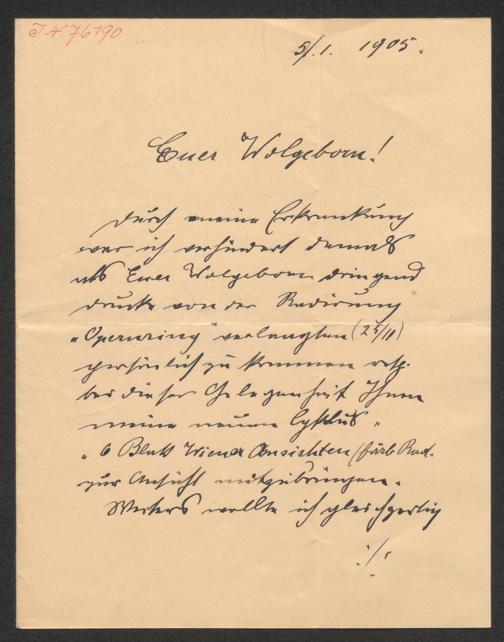 I.N. 76190
5/.1. 1905.
Euer Wolgeborn!
Durch meine Erkrankung
war ich verhindert damals
als Euer Wolgeborn dringend
Drucke von der Radirung
„Opernring" verlangten (25/11)
persönlich zu kommen resp.
bei dieser Gelegenheit Ihnen
meine neuen Cyklus „
„ 6 Blatt Wiener Ansichten (färb Rad.
zur Ansicht mitzubringen.
Weiters wollte ich gleichzeitig
./.